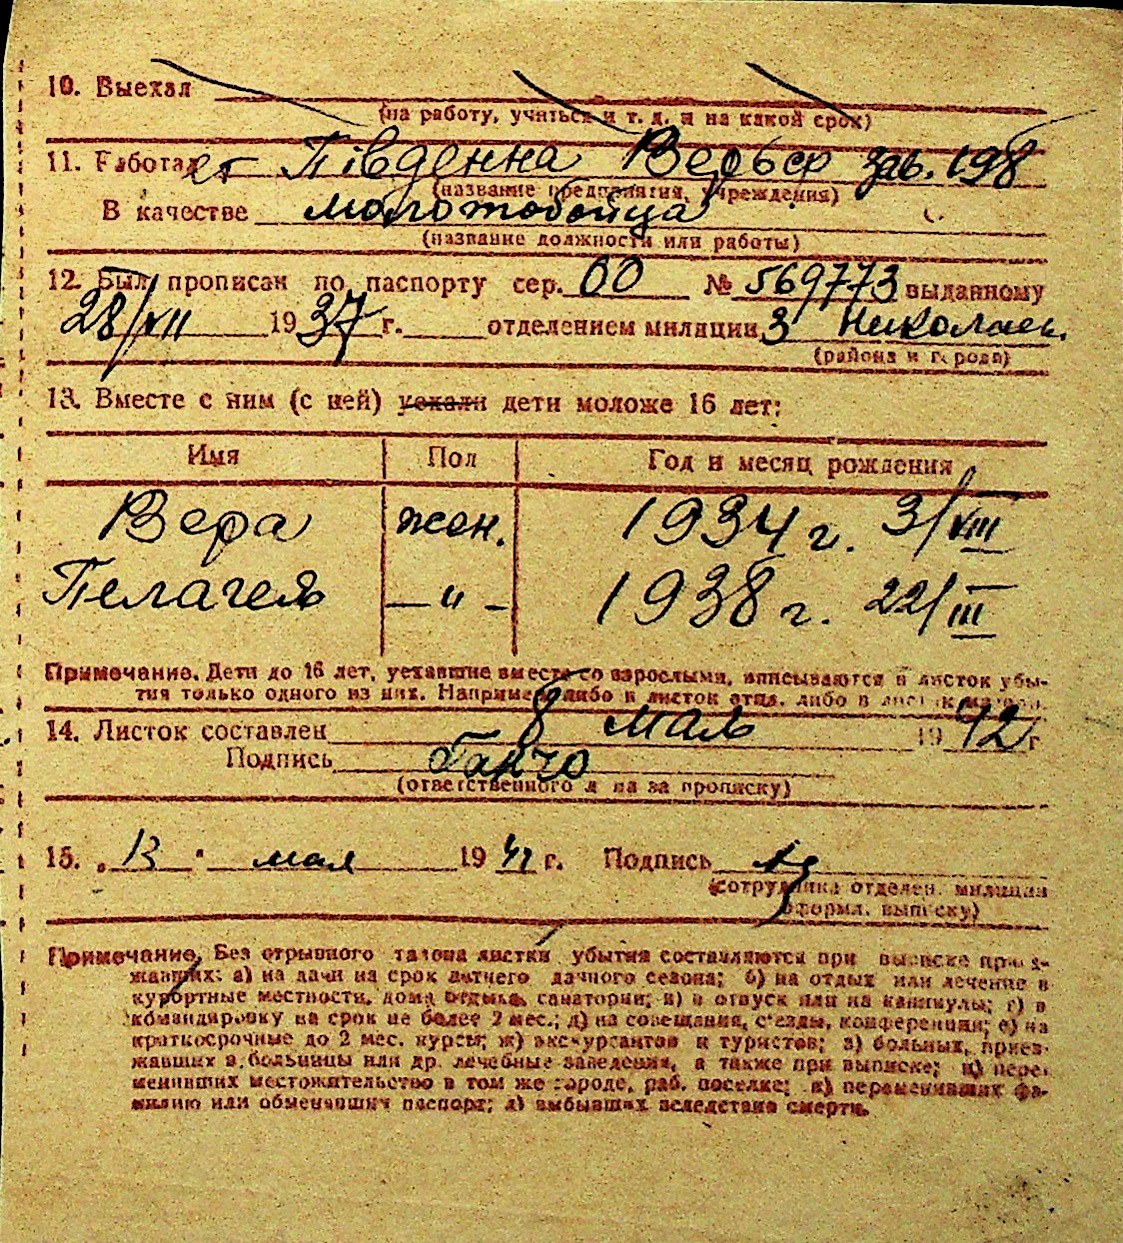 10. Выехал
(на работу, учиться и т. д. и на какой срок)
11. Работает Південна Верьєр зав. 198
(название предприятия, учреждения)
В качестве молотобойца
(название должности или работы)
12. Был прописан по паспорту сер. 00 № 569773 выданному
28/VII 1937 г. отделением милиции 3 Николаев.
(района и города)
13. Вместе с ним (с ней) уехали дети моложе 16 лет:
Имя Пол Год и месяц рождения
Вера жен. 1934 г. 3/VIII
Пелагея —"— 1938 г. 22/III
Примечание. Дети до 16 лет, уехавшие вместе со взрослыми, вписываются в листок убы-
тия только одного из них. Например либо в листок отца, либо в листок матери.
14. Листок составлен 8 мая 1942 г
Подпись Ганчо
(ответственного л на за прописку)
15. „13" мая 194 г. Подпись
(сотрудника отделен. милиции
оформл. выписку)
Примечание. Без отрывного талона листки убытия составляются при выписке приез-
жавших: а) на дачи на срок летнего дачного сезона; б) на отдых или лечение в
курортные местности, дома отдыха, санатории; в) в отпуск или на каникулы; г) в
командировку на срок не более 2 мес.; д) на совещания, с'езды, конференции; е) на
краткосрочные до 2 мес. курсы; ж) экскурсантов и туристов; з) больных, приез-
жавших в больницы или др. лечебные заведения, а также при выписке; и) пере-
менивших местожительство в том же городе, раб. поселке; к) переменивших фа-
милию или обменявших паспорт; л) выбывших вследствие смерти.